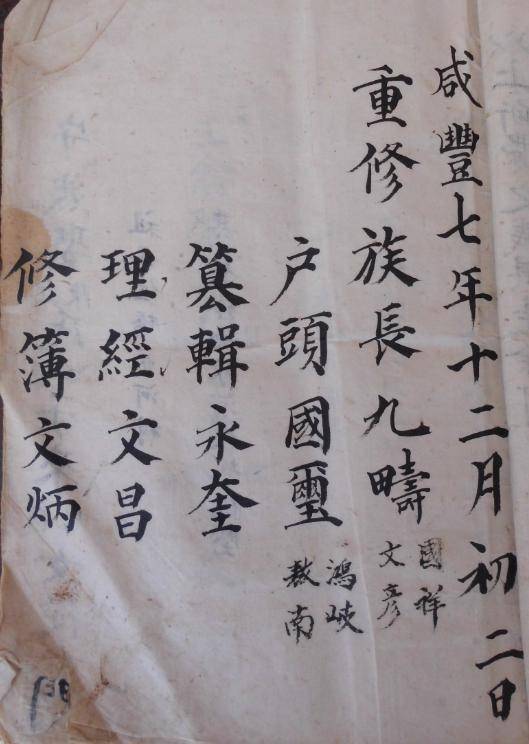 咸豐七年十二月初二日
重修族長九疇
國祥
文彥
户頭國璽
鴻岐
敖南
篡輯永奎
理經文昌
修簿文炳